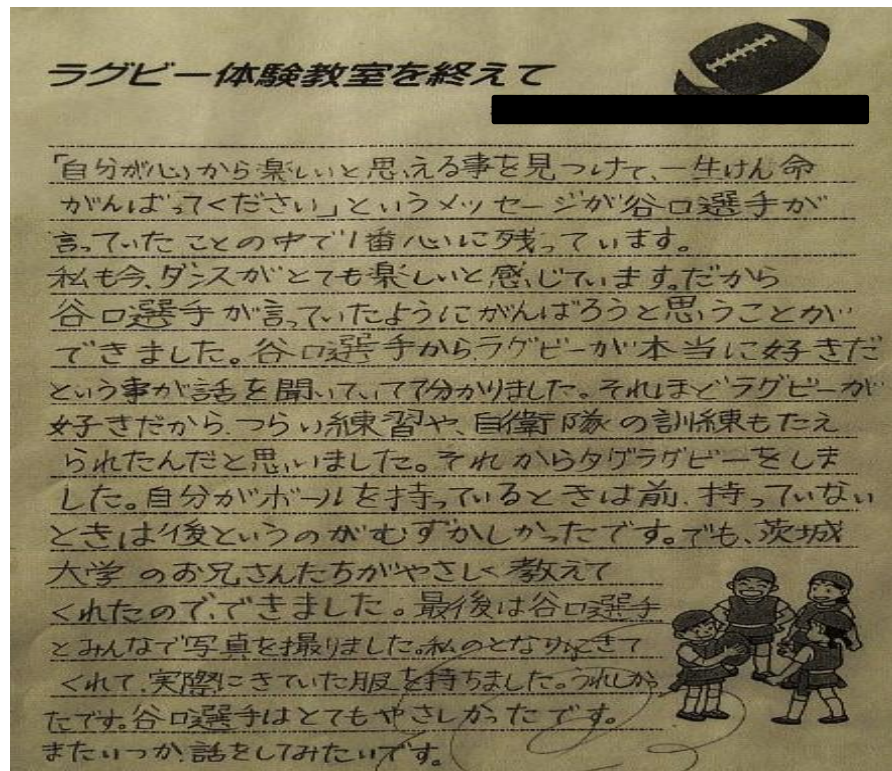 ラグビー体験教室を終えて
「自分が心から楽しいと思える事を見つけて、一生けん命
がんばってください」というメッセージが谷口選手が
言っていたことの中で1番心に残っています。
私も今、ダンスがとても楽しいと感じています。だから
谷口選手が言っていたようにがんばろうと思うことが
できました。谷口選手からラグビーが本当に好きだ
という事が話を聞いていて分かりました。それほどラグビーが
好きだから、つらい練習や、自衛隊の訓練もたえ
られたんだと思いました。それからタグラグビーをしま
した。自分がボールを持っているときは前、持っていない
ときは後というのがむずかしかったです。でも、茨城
大学のお兄さんたちがやさしく教えて
くれたので、できました。最後は谷口選手
とみんなで写真を撮りました。私のとなりにきて
くれて、実際にきていた服を持ちました。うれしかっ
たです。谷口選手はとてもやさしかったです。
またいつか、話をしてみたいです。